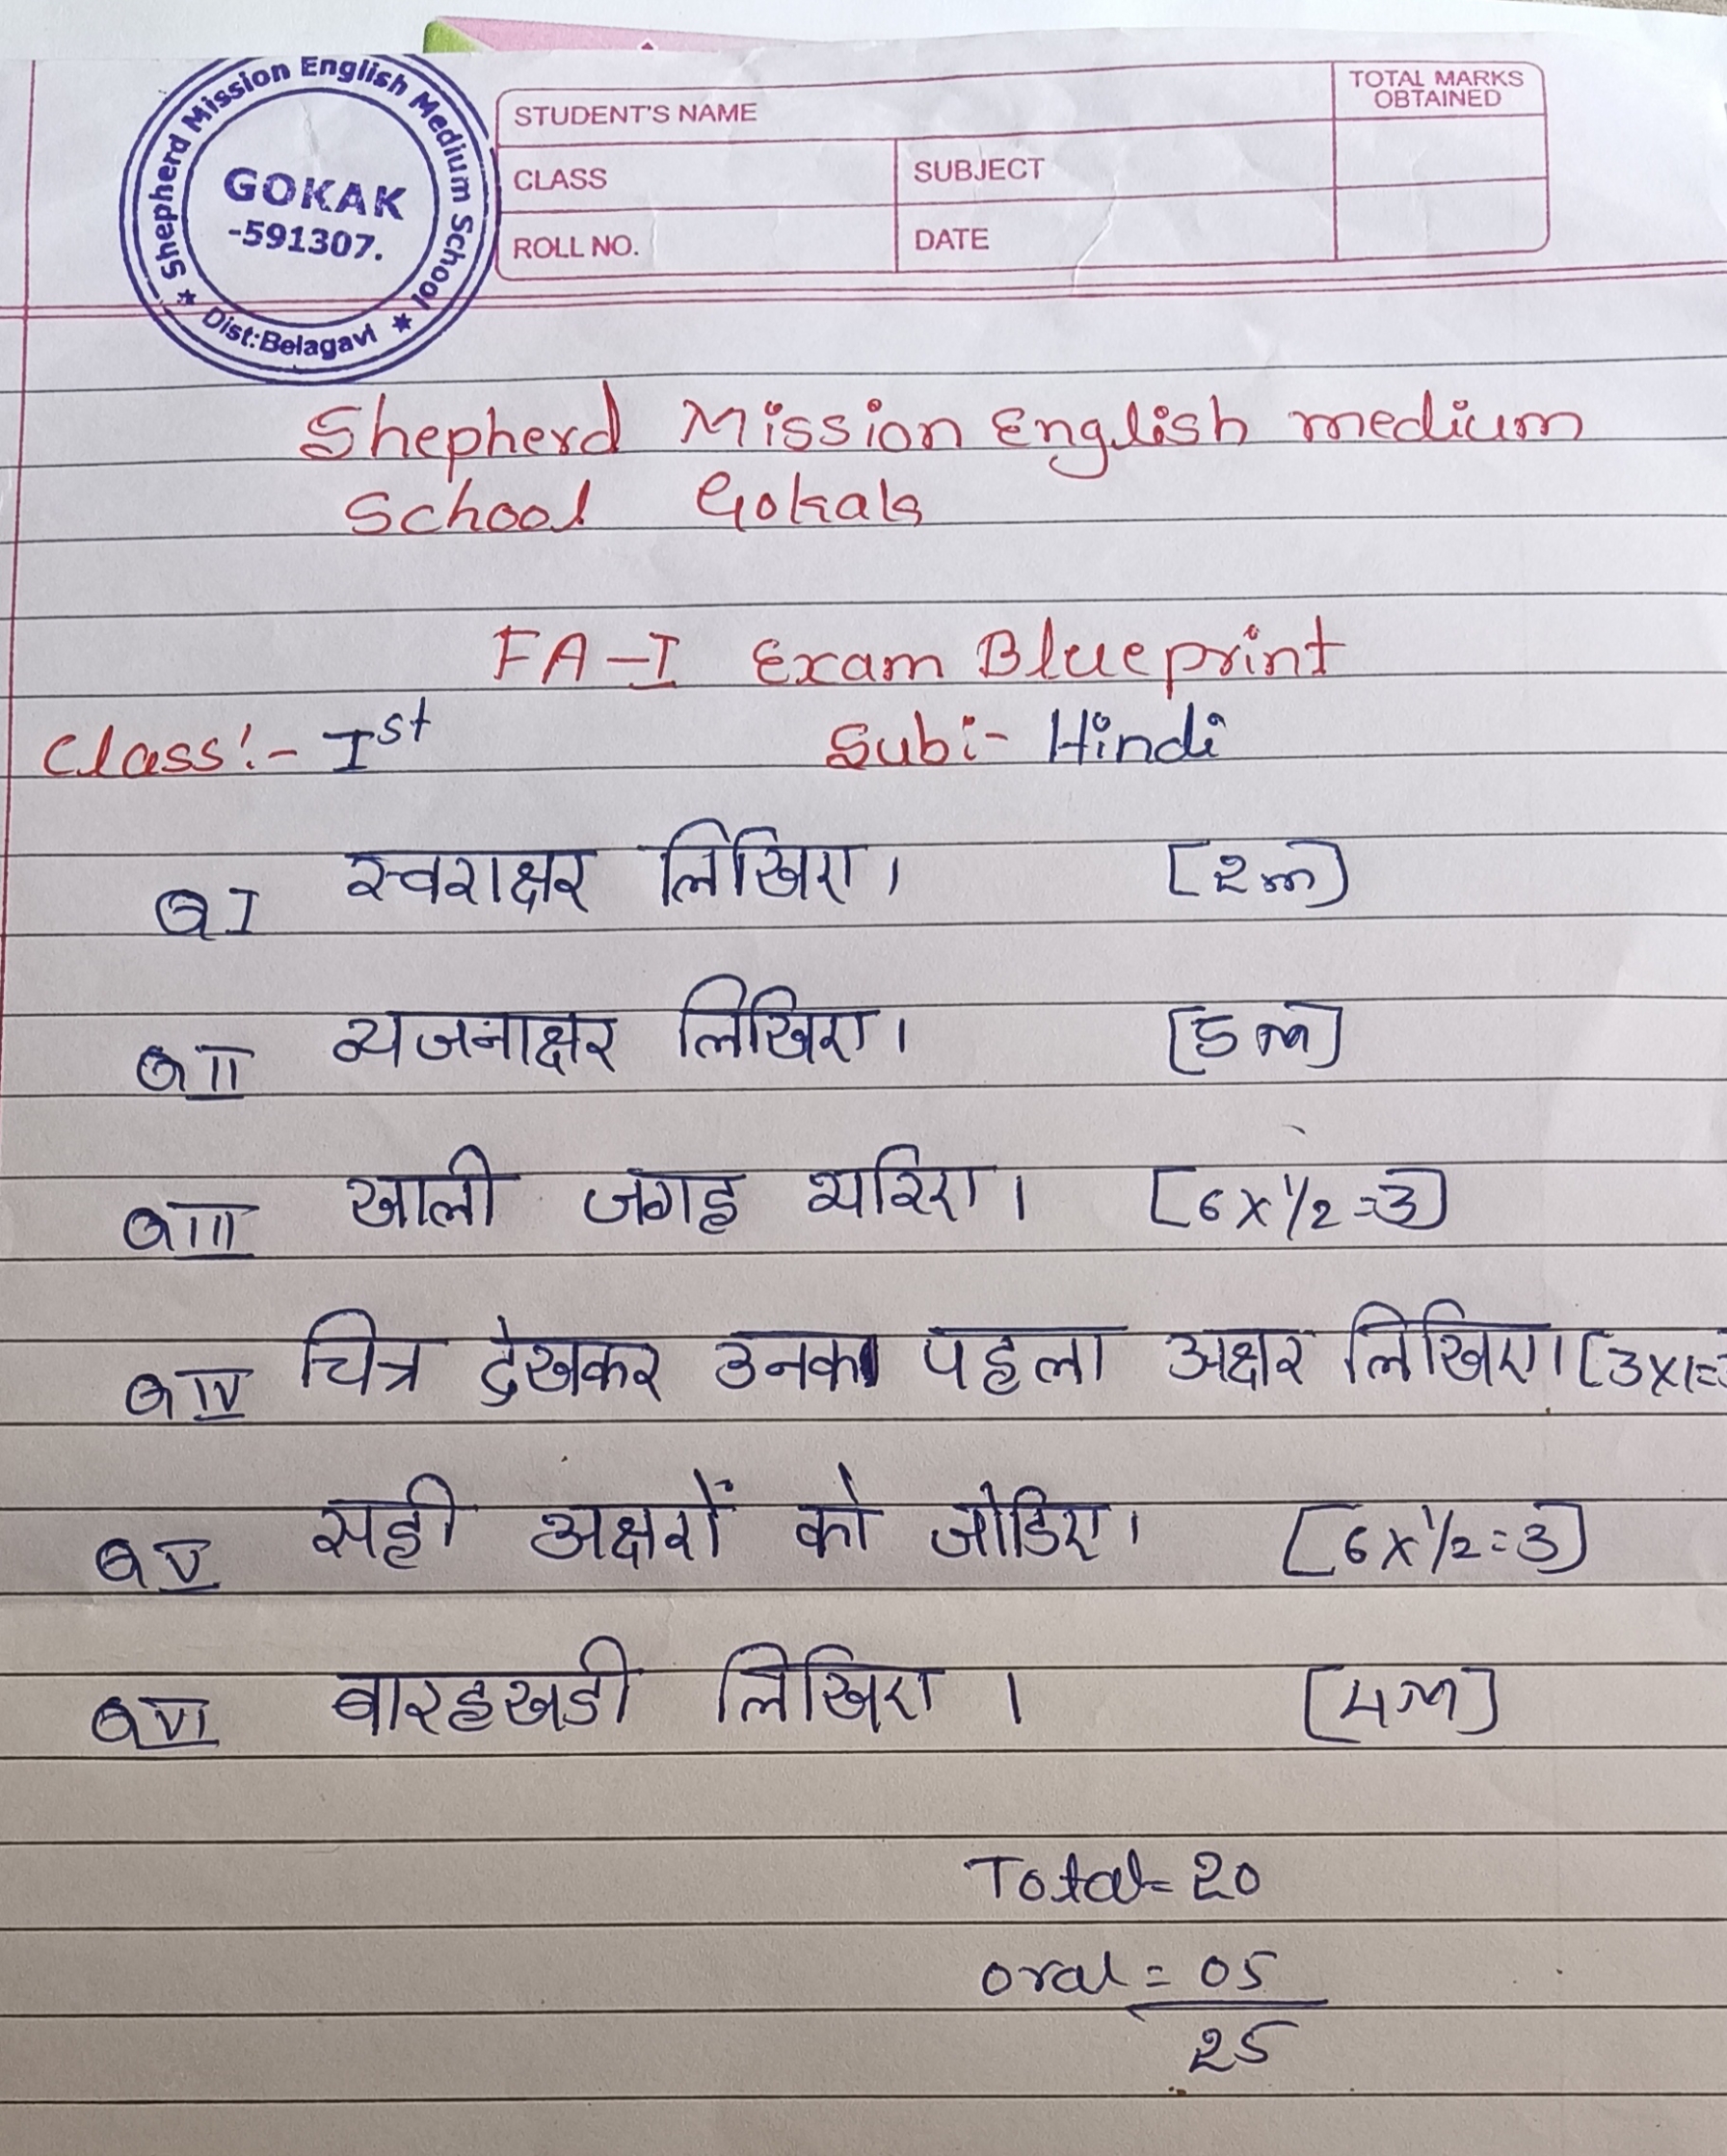 Shepherd Mission English Medium School
GOKAK
-591307.
★ Dist:Belagavi ★
STUDENT'S NAME
TOTAL MARKS OBTAINED
CLASS
SUBJECT
ROLL NO.
DATE
Shepherd Mission English medium
School Gokak
FA-I Exam Blueprint
Class:- Ist Sub:- Hindi
Q I स्वराक्षर लिखिए। [2m]
Q II व्यजनाक्षर लिखिए। [5m]
Q III खाली जगह भरिए। [6x1/2=3]
Q IV चित्र देखकर उनका पहला अक्षर लिखिए। [3x1=3
Q V सही अक्षरों को जोडिए। [6x1/2=3]
Q VI बारहखडी लिखिए। [4m]
Total= 20
oral = 05
25